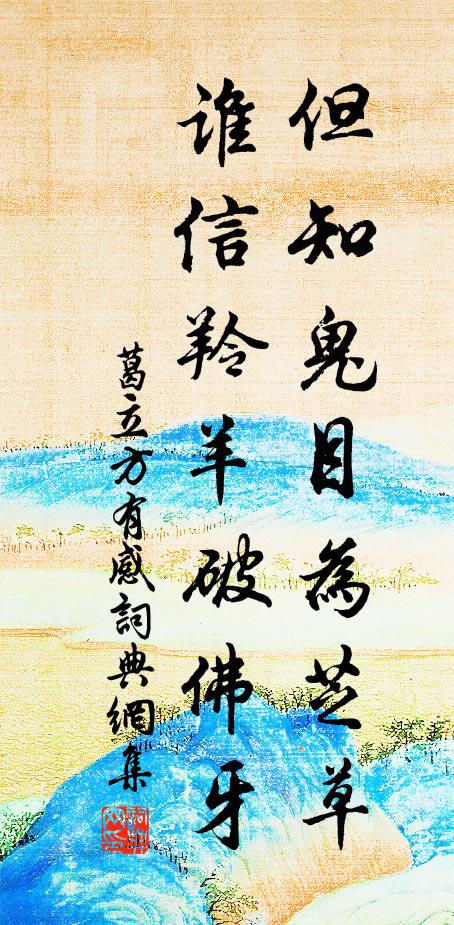 但知鬼目為芝草
誰信羚羊破佛牙
葛立方有感詞典網集